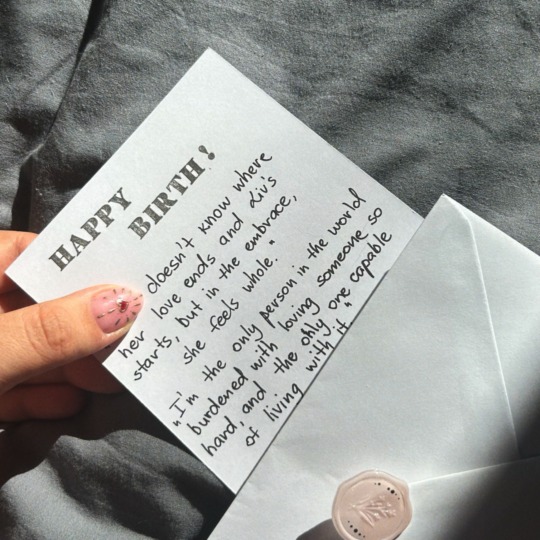 HAPPY
BIRTH!
doesn't know where
her love ends and Liv's
starts, but in the embrace,
she feels whole."
"I'm the only person in the world
burdened with loving someone so
hard, and the only one capable
of living with it"